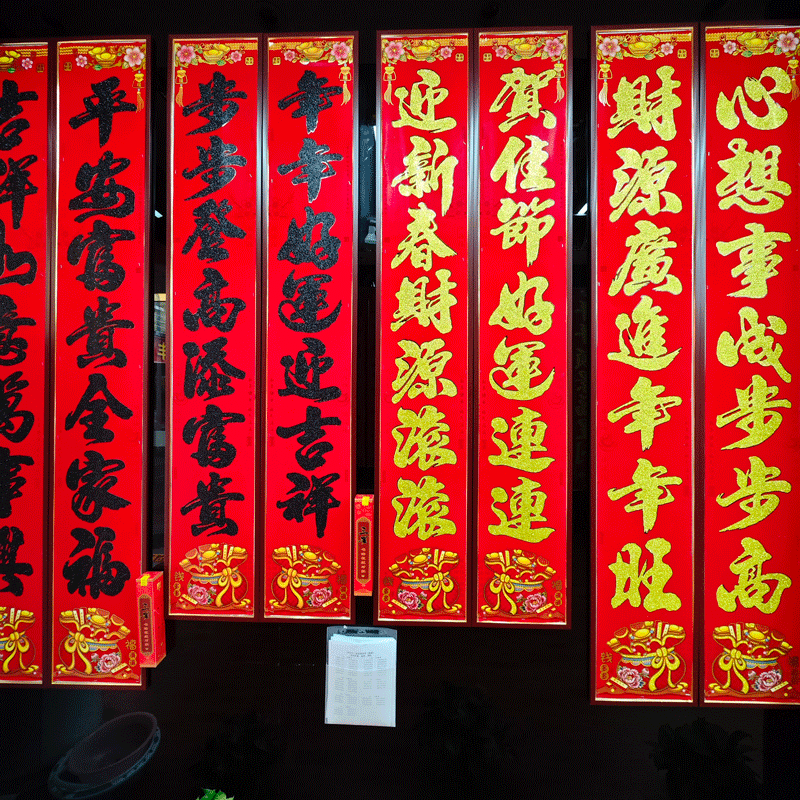 心想事成步步高
財源廣進年年旺
賀佳節好運連連
迎新春財源滾滾
年年好運迎吉祥
步步登高添富貴
平安富貴全家福
吉祥如意萬事興